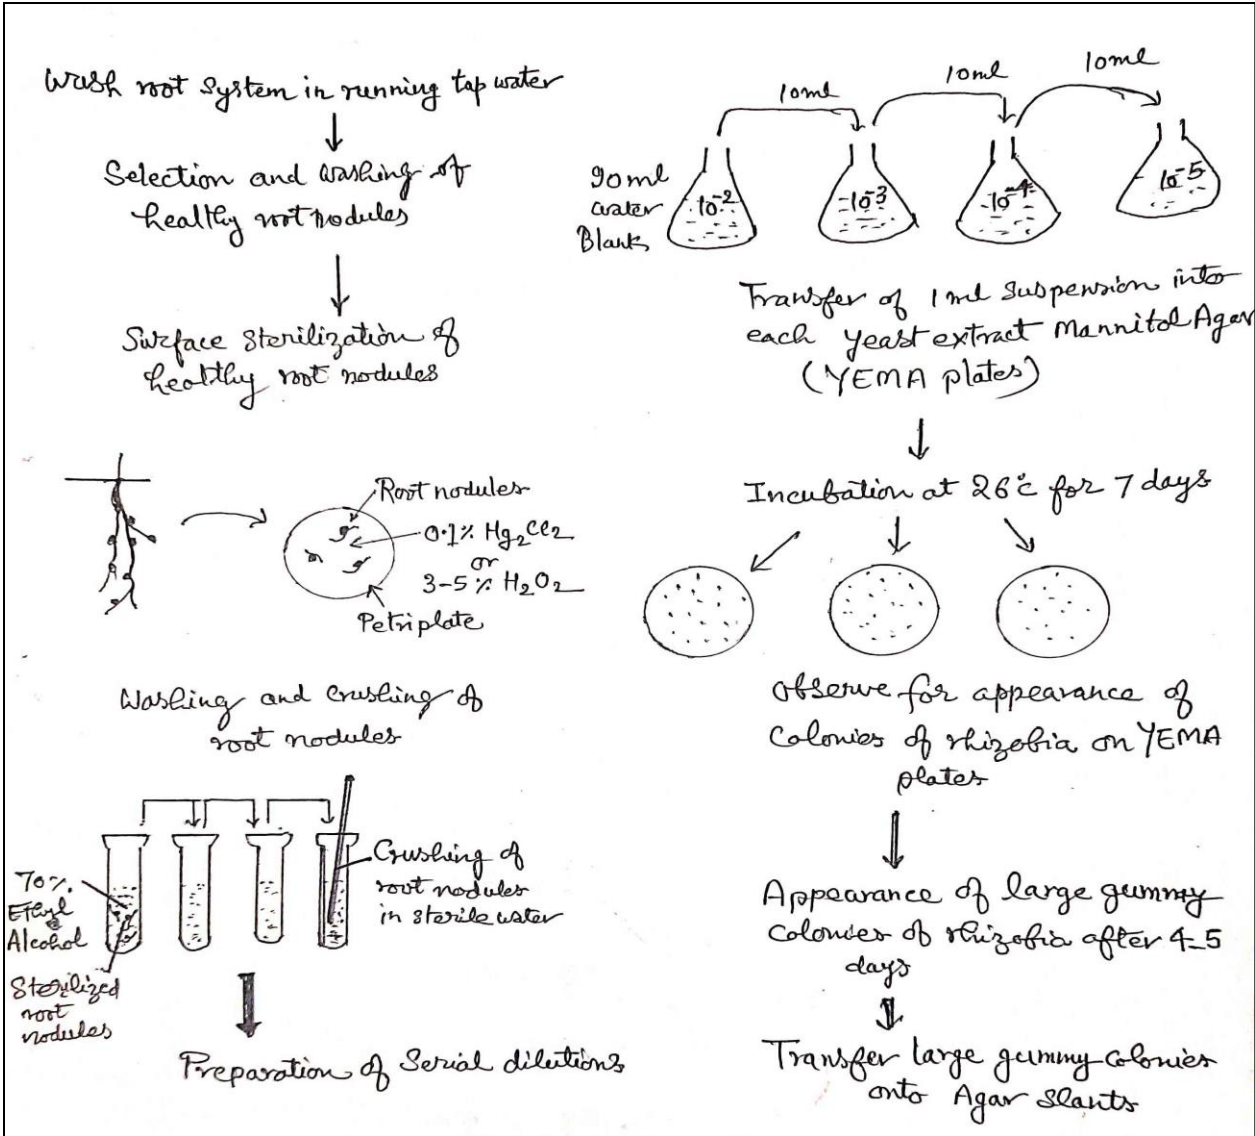 Wash root system in running tap water
Selection and washing of
healthy root nodules
Surface sterilization of
healthy root nodules
Root nodules
0.1% Hg2Cl2
or
3-5% H2O2
Petriplate
Washing and crushing of
root nodules
70%
Ethyl
Alcohol
Sterilized
root
nodules
Crushing of
root nodules
in sterile water
Preparation of Serial dilutions
10ml
10ml
10ml
90ml
water
Blanks
10-2
10-3
10-4
10-5
Transfer of 1ml suspension into
each yeast extract Mannitol Agar
(YEMA plates)
Incubation at 26°c for 7 days
Observe for appearance of
colonies of rhizobia on YEMA
plates
Appearance of large gummy
colonies of rhizobia after 4-5
days
Transfer large gummy colonies
onto Agar Slants